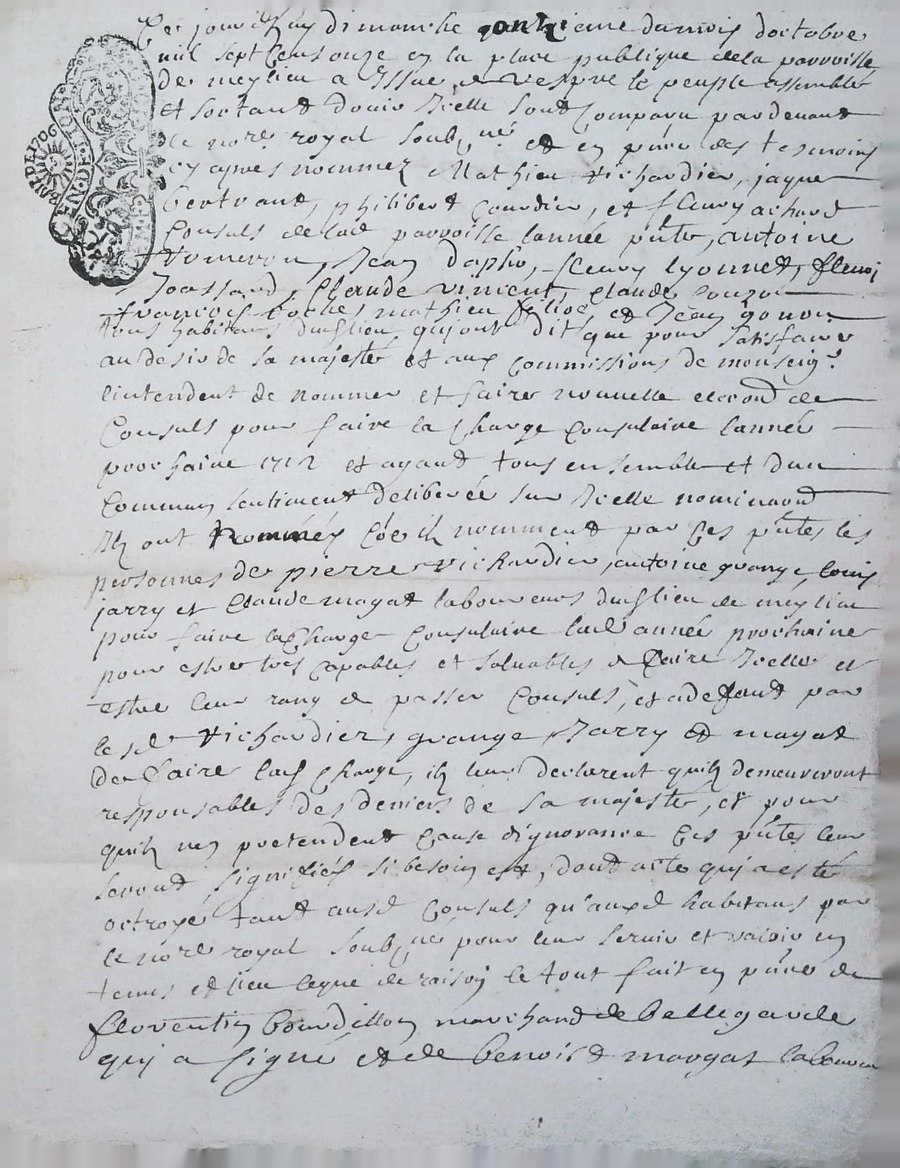 Ce jourdhuy dimanche onzieme du mois doctobre
mil sept cens onze en la place publique de la parroisse
de meylieu a Issue de vespre le peuple assemblé
et sortant douir Icelle sont comparu pardevant
le nore royal soubgné et en pnce des tesmoins
cy apres nommez Mathieu Richardier, jaque
Bertrant, philibert Courdier, et fleury achard
Consuls de lad parroisse lannée pnte, antoine
Jean Dapho, fleury lyonnet, fleuri
Joassard, Claude vincent, claude couzon
francois mathieu et Jean gonon
tous habitans dud lieu quy ont dit que pour satisfaire
au desir de sa majesté et aux commissions de monseigr
lintendent de nommer et faire nouuelle de
Consuls pour faire la charge consulaire lannée
prochaine 1712 et ayant tous ensemble et dun
commun sentiment deliberée sur Icelle nominaon
Ilz ont nommés ilz nomment par ces pntes les
personnes de pierre Richardier, antoine grange, louis
jarry et Claude mayat laboureurs dud lieu de meylieu
pour faire la charge consulaire lad année prochaine
pour estre tres capables et soluables de faire Icelle et
estre leur rang de passer consuls, et a defaut par
les d Richardier, grange Jarry et mayat
de faire lad charge, ilz leur declarent quilz demeureront
responsables des deniers de sa majesté, et pour
quilz nen pretendent cause dignorance ces pntes leur
seront signifiés si besoin est, dont acte quy a esté
octroyé tant ausd consuls qu'auxd habitans par
le nore royal soubgné pour leur seruir et valoir en
temps et lieu ce que de raison le tout fait en pnce de
florentin Bourdillon marchand de bellegarde
quy a signé et de benoist margat laboureur